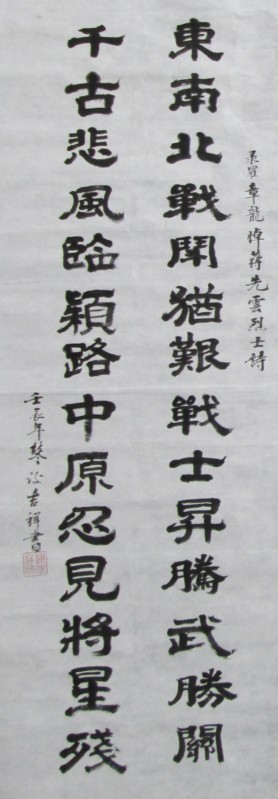 录羅章龍悼蒋先雲烈士詩
東南北戰閗猶艱戰士昇騰武勝關
千古悲風臨穎路中原忍見將星殘
壬辰年吉祥書